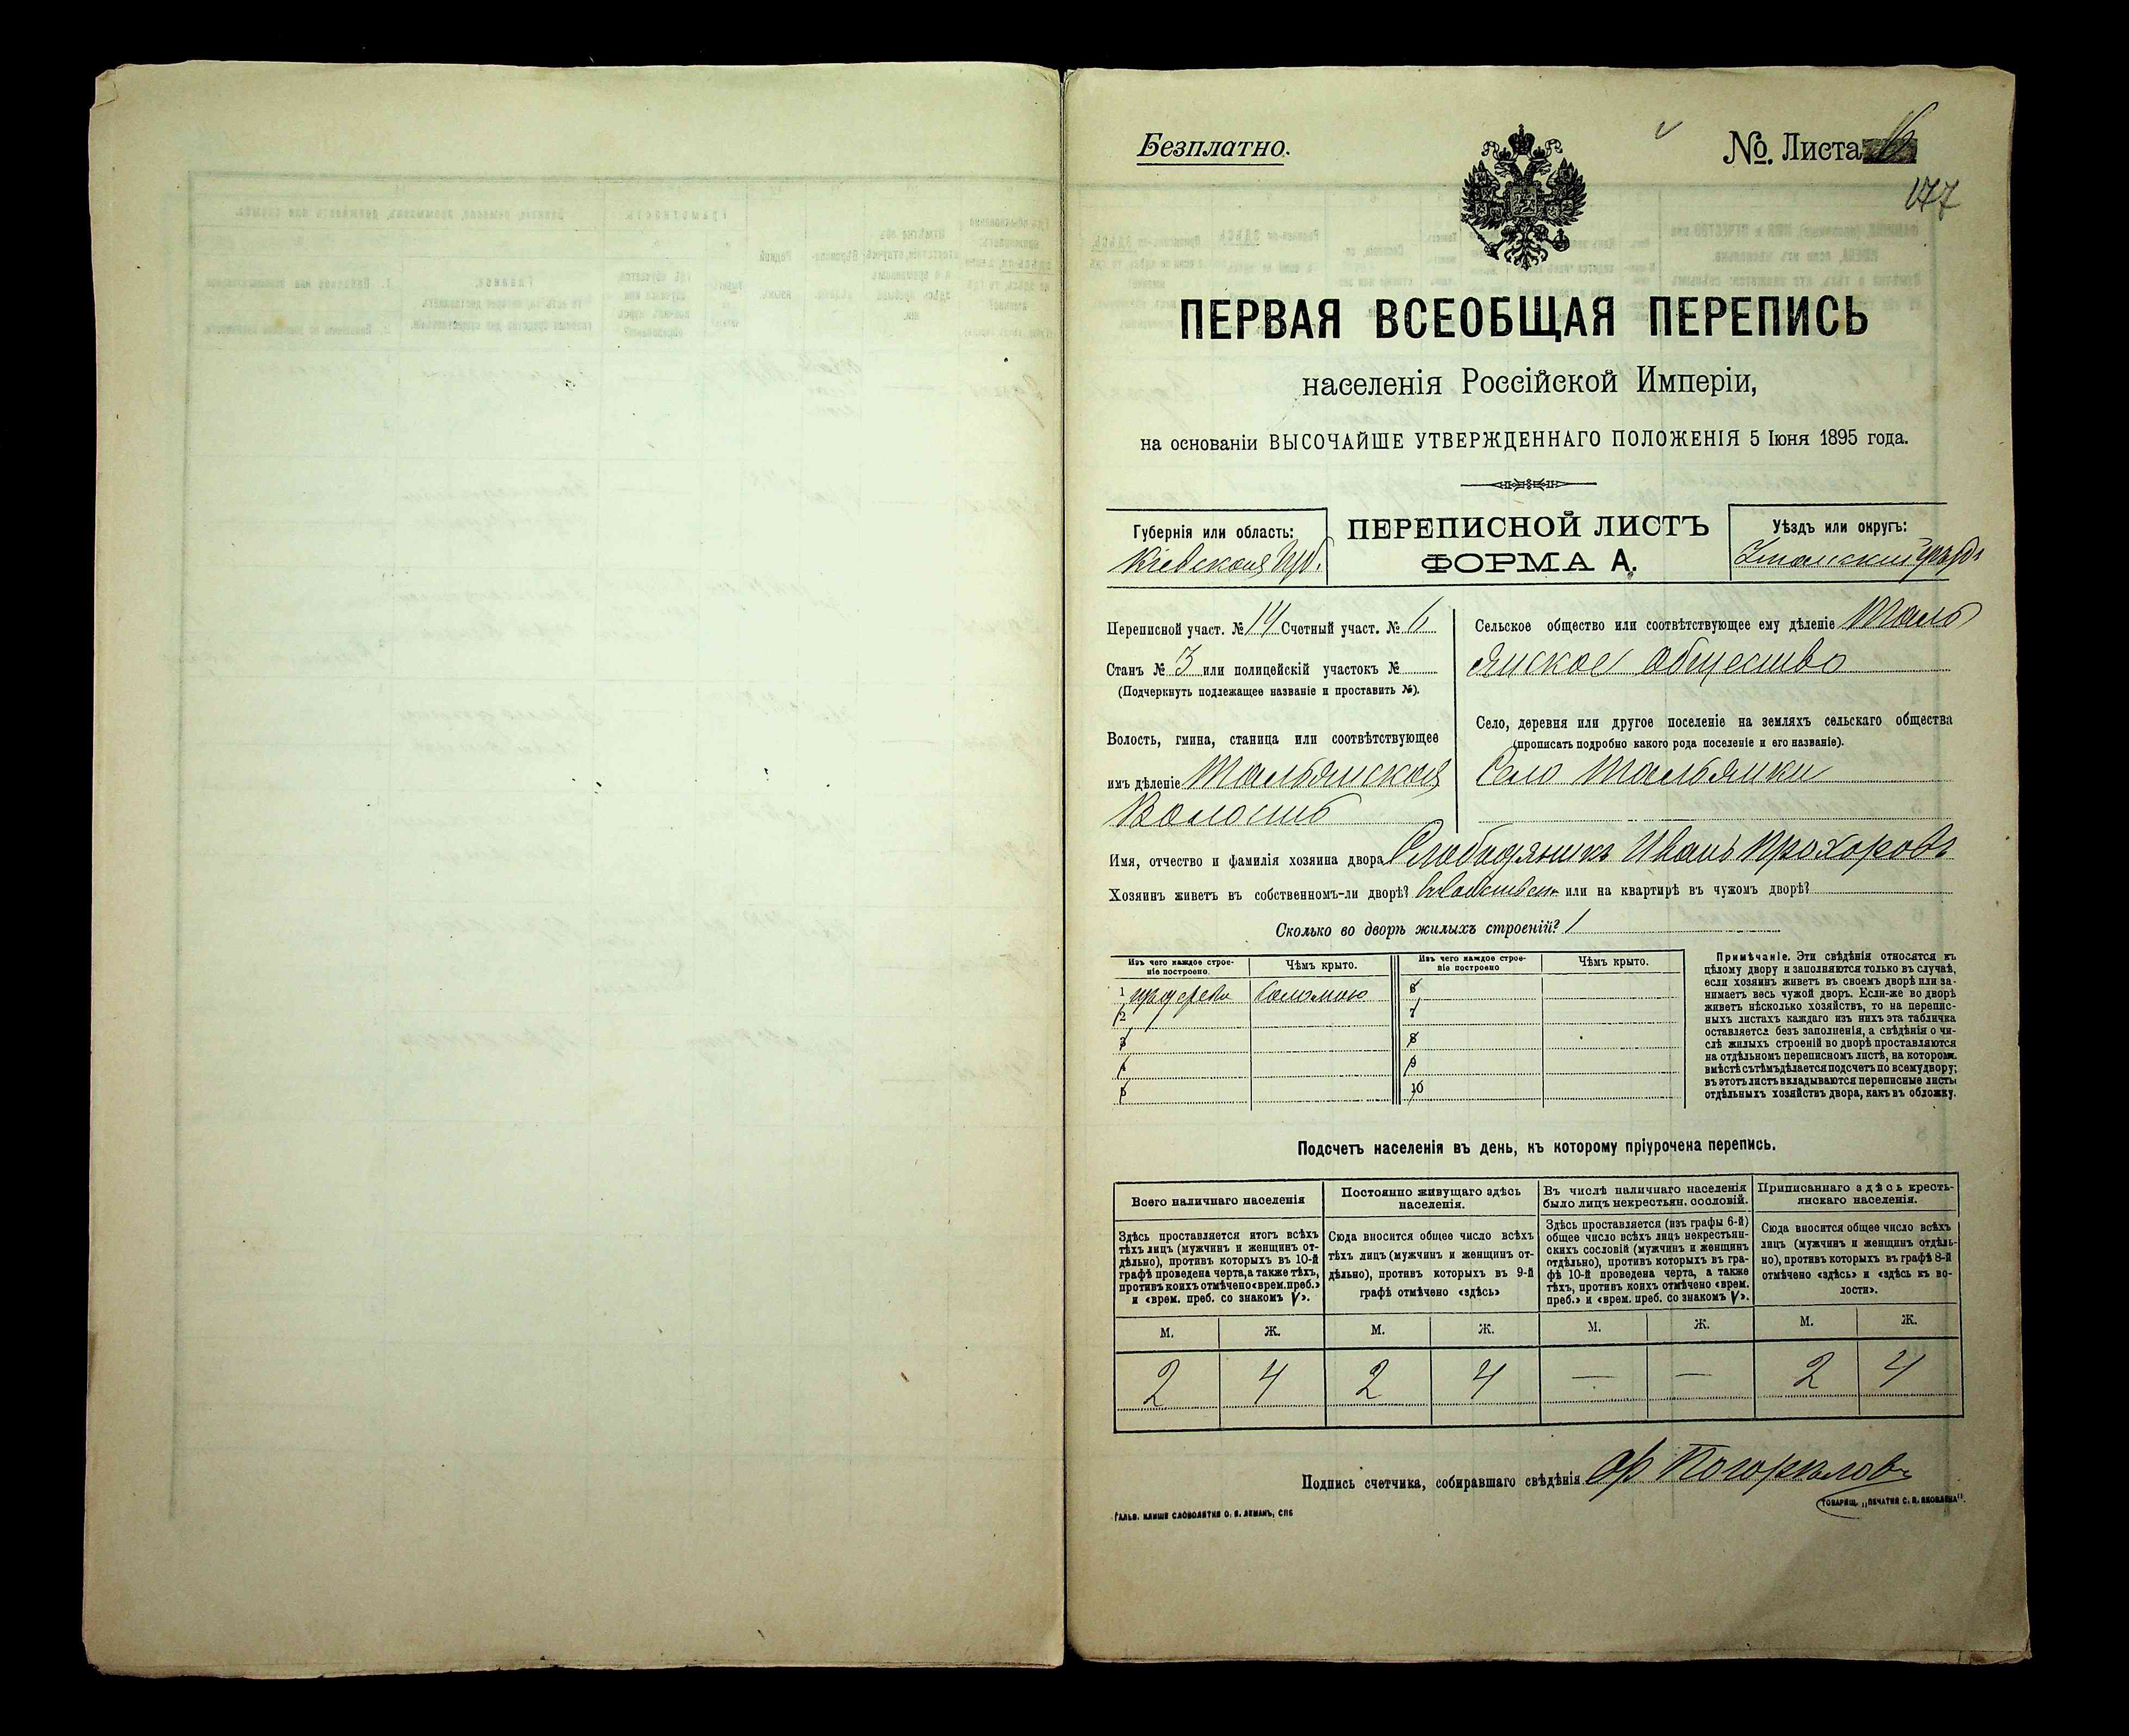 Безплатно.
№ Листа
177
ПЕРВАЯ ВСЕОБЩАЯ ПЕРЕПИСЬ
населенія Россійской Имперіи,
на основаніи ВЫСОЧАЙШЕ УТВЕРЖДЕННАГО ПОЛОЖЕНІЯ 5 Іюня 1895 года.
Губернія или область:
Кіевская губ.
ПЕРЕПИСНОЙ ЛИСТЪ
ФОРМА А.
Уѣздъ или округъ:
Уманскій уѣздъ
Переписной участ. № 14 Счетный участ. № 6
Станъ № 3 или полицейскій участокъ №
(Подчеркнуть подлежащее названіе и проставить №).
Волость, гмина, станица или соотвѣтствующее
имъ дѣленіе Тальянская
Волость
Сельское общество или соотвѣтствующее ему дѣленіе Таль
янское общество
Село, деревня или другое поселеніе на земляхъ сельскаго общества
(прописать подробно какого рода поселеніе и его названіе).
Село Тальянки
Имя, отчество и фамилія хозяина двора Слободяникъ Иванъ Прохоровъ
Хозяинъ живетъ въ собственномъ-ли дворѣ? въ собствен. или на квартирѣ въ чужомъ дворѣ?
Сколько во дворѣ жилыхъ строеній? 1
Изъ чего каждое строе-
ніе построено.
Чѣмъ крыто.
Изъ чего каждое строе-
ніе построено
Чѣмъ крыто.
1 изъ дерева Соломою
2
3
4
5
6
7
8
9
10
Примѣчаніе. Эти свѣдѣнія относятся къ
цѣлому двору и заполняются только въ случаѣ,
если хозяинъ живетъ въ своемъ дворѣ или за-
нимаетъ весь чужой дворъ. Если-же во дворѣ
живетъ нѣсколько хозяйствъ, то на перепис-
ныхъ листахъ каждаго изъ нихъ эта табличка
оставляется безъ заполненія, а свѣдѣнія о чи-
слѣ жилыхъ строеній во дворѣ проставляются
на отдѣльномъ переписномъ листѣ, на которомъ
вмѣстѣ съ тѣмъ дѣлается подсчетъ по всему двору;
въ этотъ листъ вкладываются переписные листы
отдѣльныхъ хозяйствъ двора, какъ въ обложку.
Подсчетъ населенія въ день, къ которому пріурочена перепись.
Всего наличнаго населенія
Здѣсь проставляется итогъ всѣхъ
тѣхъ лицъ (мужчинъ и женщинъ от-
дѣльно), противъ которыхъ въ 10-й
графѣ проведена черта, а также тѣхъ,
противъ коихъ отмѣчено «врем. преб.»
и «врем. преб. со знакомъ V».
Постоянно живущаго здѣсь
населенія.
Сюда вносится общее число всѣхъ
тѣхъ лицъ (мужчинъ и женщинъ от-
дѣльно), противъ которыхъ въ 9-й
графѣ отмѣчено «здѣсь»
Въ числѣ наличнаго населенія
было лицъ некрестьян. сословій.
Здѣсь проставляется (изъ графы 6-й)
общее число всѣхъ лицъ некрестьян-
скихъ сословій (мужчинъ и женщинъ
отдѣльно), противъ которыхъ въ гра-
фѣ 10-й проведена черта, а также
тѣхъ, противъ коихъ отмѣчено «врем.
преб.» и «врем. преб. со знакомъ V».
Приписаннаго здѣсь кресть-
янскаго населенія.
Сюда вносится общее число всѣхъ
лицъ (мужчинъ и женщинъ отдѣль-
но), противъ которыхъ въ графѣ 8-й
отмѣчено «здѣсь» и «здѣсь къ во-
лости».
М. Ж. М. Ж. М. Ж. М. Ж.
2 4 2 4 — — 2 4
Подпись счетчика, собиравшаго свѣдѣнія Погорѣловъ
ГАЛЬВ. КЛИШЕ СЛОВОЛИТНИ О. И. ЛЕМАНЪ, СПБ
ТОВАРИЩ. „ПЕЧАТНЯ С. П. ЯКОВЛЕВА“.